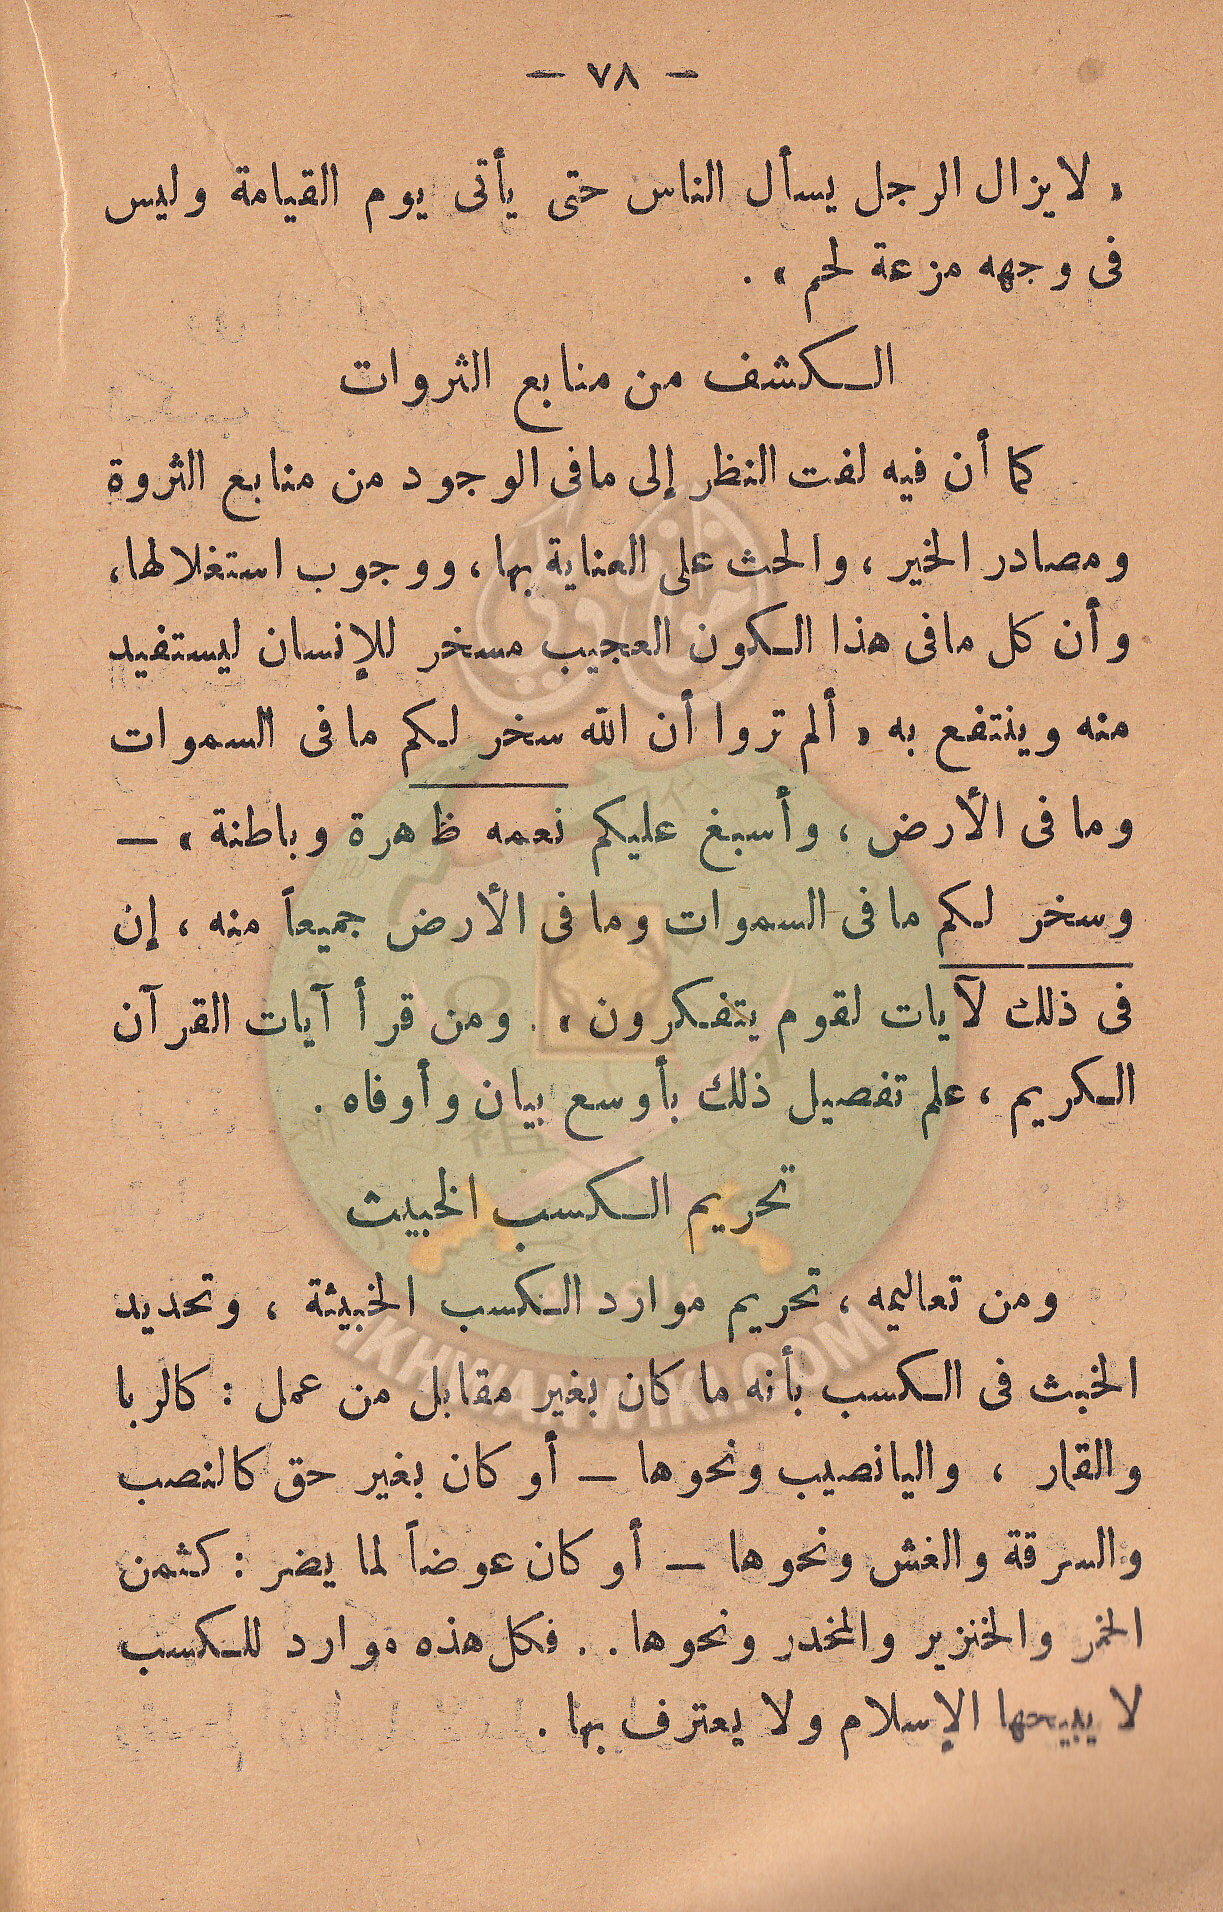 — ٧٨ —
« لا يزال الرجل يسأل الناس حتى يأتى يوم القيامة وليس
فى وجهه مزعة لحم » .
الكشف من منابع الثروات
كما أن فيه لفت النظر إلى مافى الوجود من منابع الثروة
ومصادر الخير ، والحث على العناية بها ، ووجوب استغلالها ،
وأن كل مافى هذا الكون العجيب مسخر للإنسان ليستفيد
منه وينتفع به « ألم تروا أن الله سخر لكم مافى السموات
وما فى الأرض ، وأسبغ عليكم نعمه ظاهرة وباطنة » —
وسخر لكم مافى السموات وما فى الأرض جميعاً منه ، إن
فى ذلك لآيات لقوم يتفكرون » . ومن قرأ آيات القرآن
الكريم ، علم تفصيل ذلك بأوسع بيان وأوفاه .
تحريم الكسب الخبيث
ومن تعاليمه ، تحريم موارد الكسب الخبيثة ، وتحديد
الخبث فى الكسب بأنه ما كان بغير مقابل من عمل : كالربا
والقمار ، واليانصيب ونحوها — أو كان بغير حق كالنصب
والسرقة والغش ونحوها — أو كان عوضاً لما يضر : كثمن
الخمر والخنزير والمخدر ونحوها . . فكل هذه موارد للكسب
لا يبيحها الإسلام ولا يعترف بها .
إخوان ويكي
IKHWANWIKI.COM